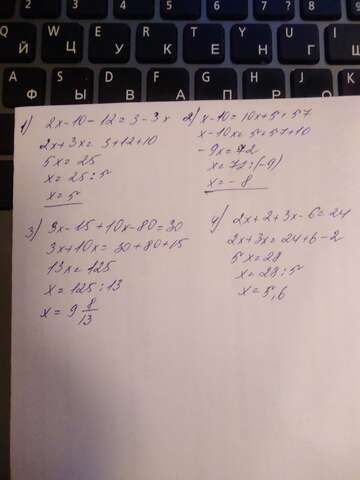 1) 2x-10-12=3-3x
2x+3x=3+12+10
5x=25
x=25:5
x=5
2) x-10=10x+5+57
x-10x=5+57+10
-9x=72
x=72:(-9)
x=-8
3) 3x-15+10x-80=30
3x+10x=30+80+15
13x=125
x=125:13
x=9 8/13
4) 2x+2+3x-6=24
2x+3x=24+6-2
5x=28
x=28:5
x=5,6